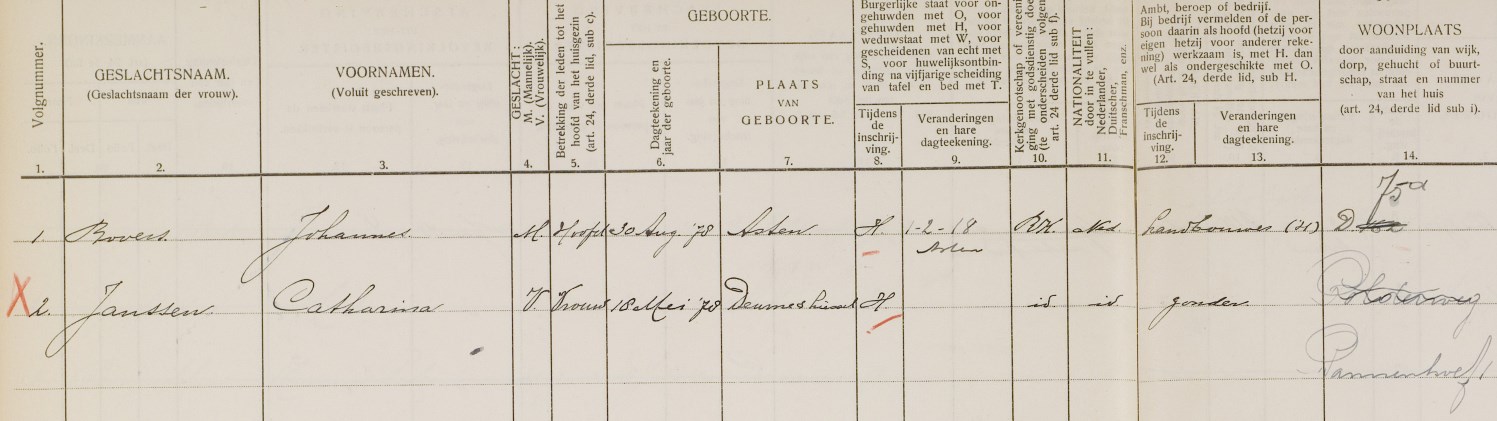 Volgnummer.
1.
GESLACHTSNAAM.
(Geslachtsnaam der vrouw).
2.
VOORNAMEN.
(Voluit geschreven).
3.
GESLACHT:
M. (Mannelijk).
V. (Vrouwelijk).
4.
Betrekking der leden tot het
hoofd van het huisgezin
(art. 24, derde lid, sub c).
5.
GEBOORTE.
Dagteekening en
jaar der geboorte.
6.
PLAATS
VAN
GEBOORTE.
7.
Burgerlijke staat voor on-
gehuwden met O, voor
gehuwden met H, voor
weduwstaat met W, voor
gescheidenen van echt met
S, voor huwelijksontbin-
ding na vijfjarige scheiding
van tafel en bed met T.
Tijdens
de
inschrij-
ving.
8.
Veranderingen
en hare
dagteekening.
9.
Kerkgenootschap of vereeni-
ging met godsdienstig doel
(te onderscheiden volgens
art. 24 derde lid sub f).
10.
NATIONALITEIT
door in te vullen:
Nederlander,
Duitscher,
Franschman, enz.
11.
Ambt, beroep of bedrijf.
Bij bedrijf vermelden of de per-
soon daarin als hoofd (hetzij voor
eigen hetzij voor anderer reke-
ning) werkzaam is, met H. dan
wel als ondergeschikte met O.
(Art. 24, derde lid, sub H.
Tijdens
de
inschrij-
ving.
12.
Veranderingen
en hare
dagteekening.
13.
WOONPLAATS
door aanduiding van wijk,
dorp, gehucht of buurt-
schap, straat en nummer
van het huis
(art. 24, derde lid sub i).
14.
75a
1. Bovers Johannes M. Hoofd 30 Aug '78 Asten H. 1-2-18 R.K. Ned. landbouwer (H) D.
Asten
X 2. Janssen Catharina V. Vrouw 18 Mei '78 Deurne H id id zonder
Pannenhoef 1